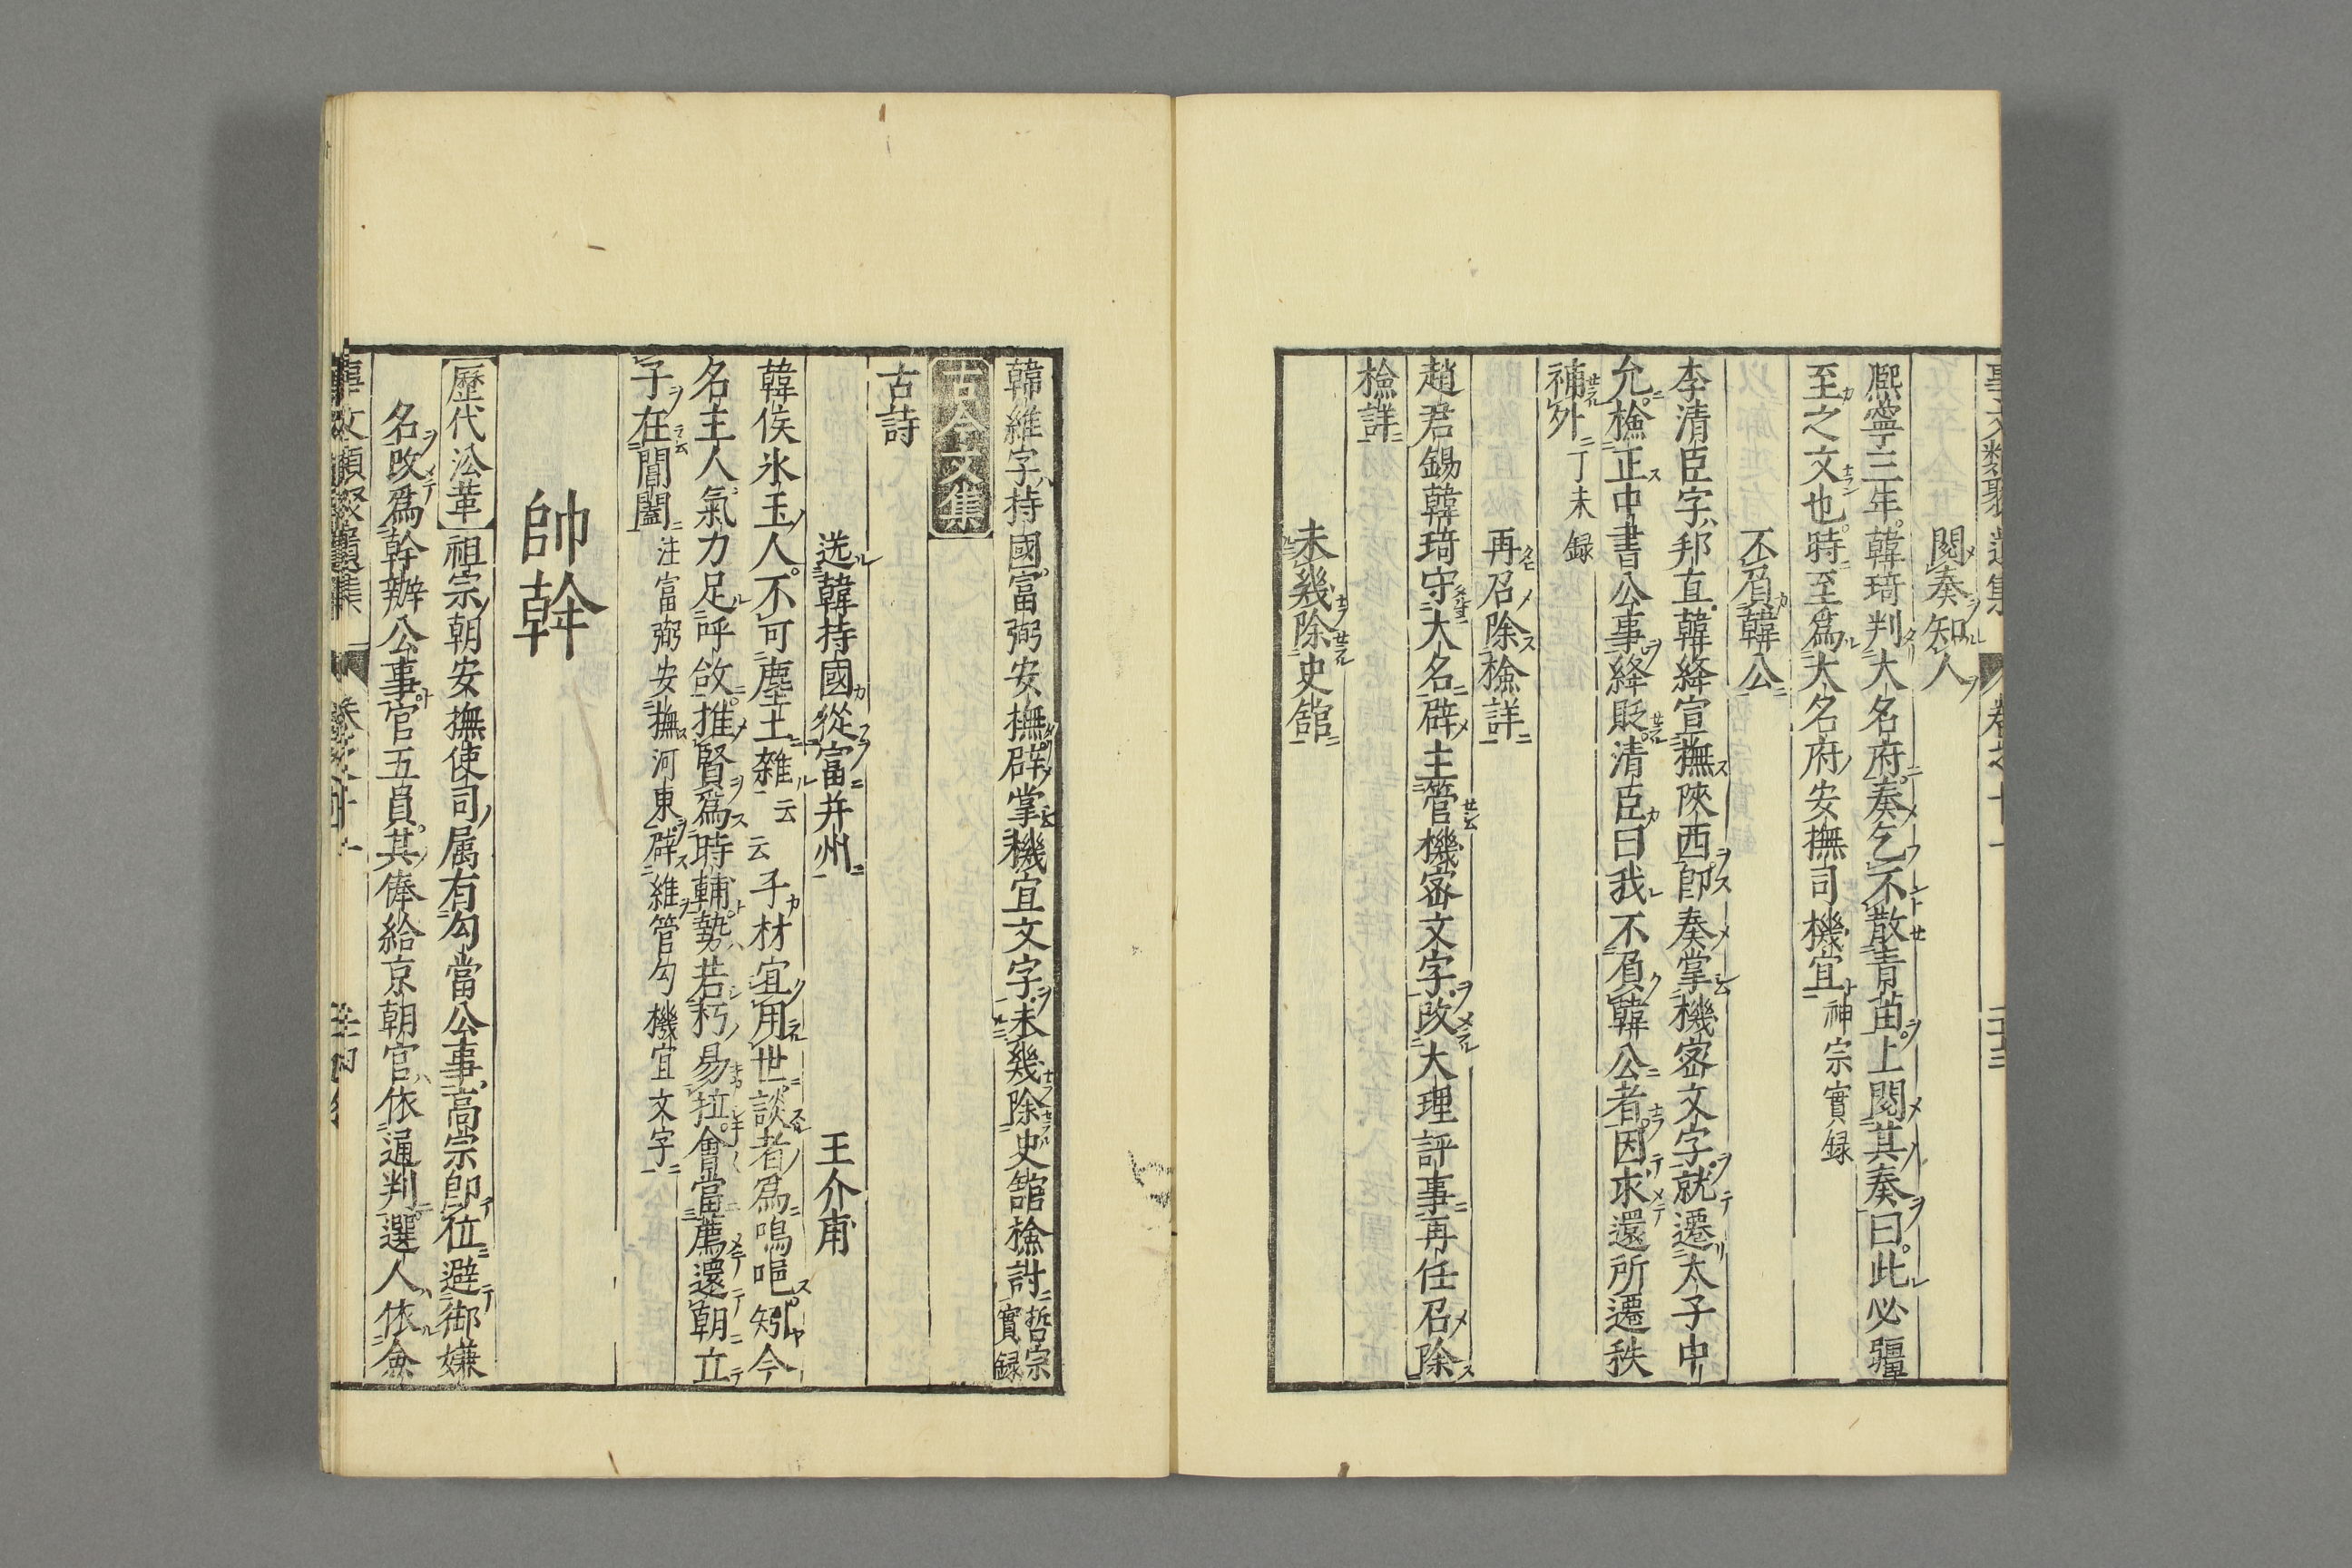 閱奏知人
熈寧三年韓琦判大名府奏乞不散青苗上閱其奏曰此必彊
至之文也時至爲大名府安撫司機宜神宗實録
不負韓公
李清臣字邦直韓絳宣撫陝西卽奏掌機宻文字就遷太子中
允檢正中書公事絳貶清臣曰我不負韓公者因求還所遷秩
補外丁未録
再召除檢詳
趙君錫韓琦守大名辟主管機宻文字改大理評事再任召除
檢詳
未幾除史舘
韓維字持國富弼安撫辟掌機宜文字未幾除史舘檢討哲宗實録
古今文集
古詩
送韓持國從富并州 王介甫
韓侯氷玉人不可塵土雜云云子材宜用世談者爲嗚唈矧今
名主人氣力足呼欱推賢爲時輔勢若朽易拉會當薦還朝立
子在閶闔注富弼安撫河東辟維管勾機宜文字
帥幹
歷代㳂革 祖宗朝安撫使司属有勾當公事高宗卽位避御嫌
名改爲幹辦公事官五員其俸給京朝官依通判選人依僉